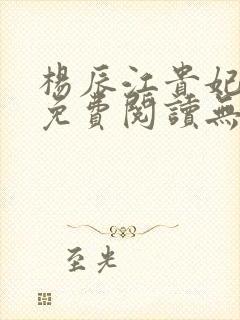 楊辰江貴妃
免費閱讀無
至光